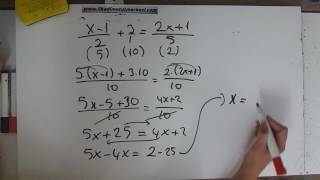 x-1/2 + 3/1 = 2x+1/5
(5) (10) (2)
5(x-1)+3·10/10 = 2·(2x+1)/10
5x-5+30/10 = 4x+2/10
5x+25 = 4x+2
5x-4x = 2-25
x =